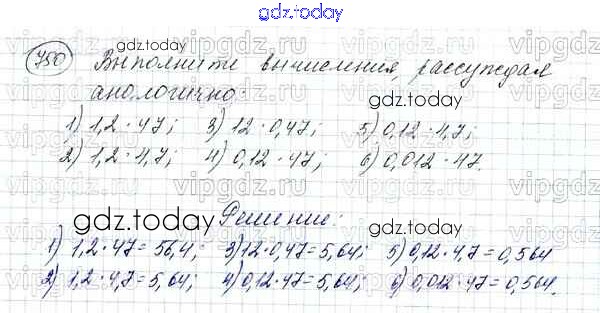 gdz.today
750 Выполните вычисления, рассуждая
gdz.today
анологично:
gdz.today
1) 1,2 · 47; 3) 12 · 0,47; 5) 0,12 · 4,7;
2) 1,2 · 4,7; 4) 0,12 · 47; 6) 0,012 · 47.
gdz.today
Решение:
gdz.today
1) 1,2 · 47 = 56,4; 3) 12 · 0,47 = 5,64; 5) 0,12 · 4,7 = 0,564
2) 1,2 · 4,7 = 5,64; 4) 0,12 · 47 = 5,64; 6) 0,012 · 47 = 0,564.
gdz.today
gdz.today